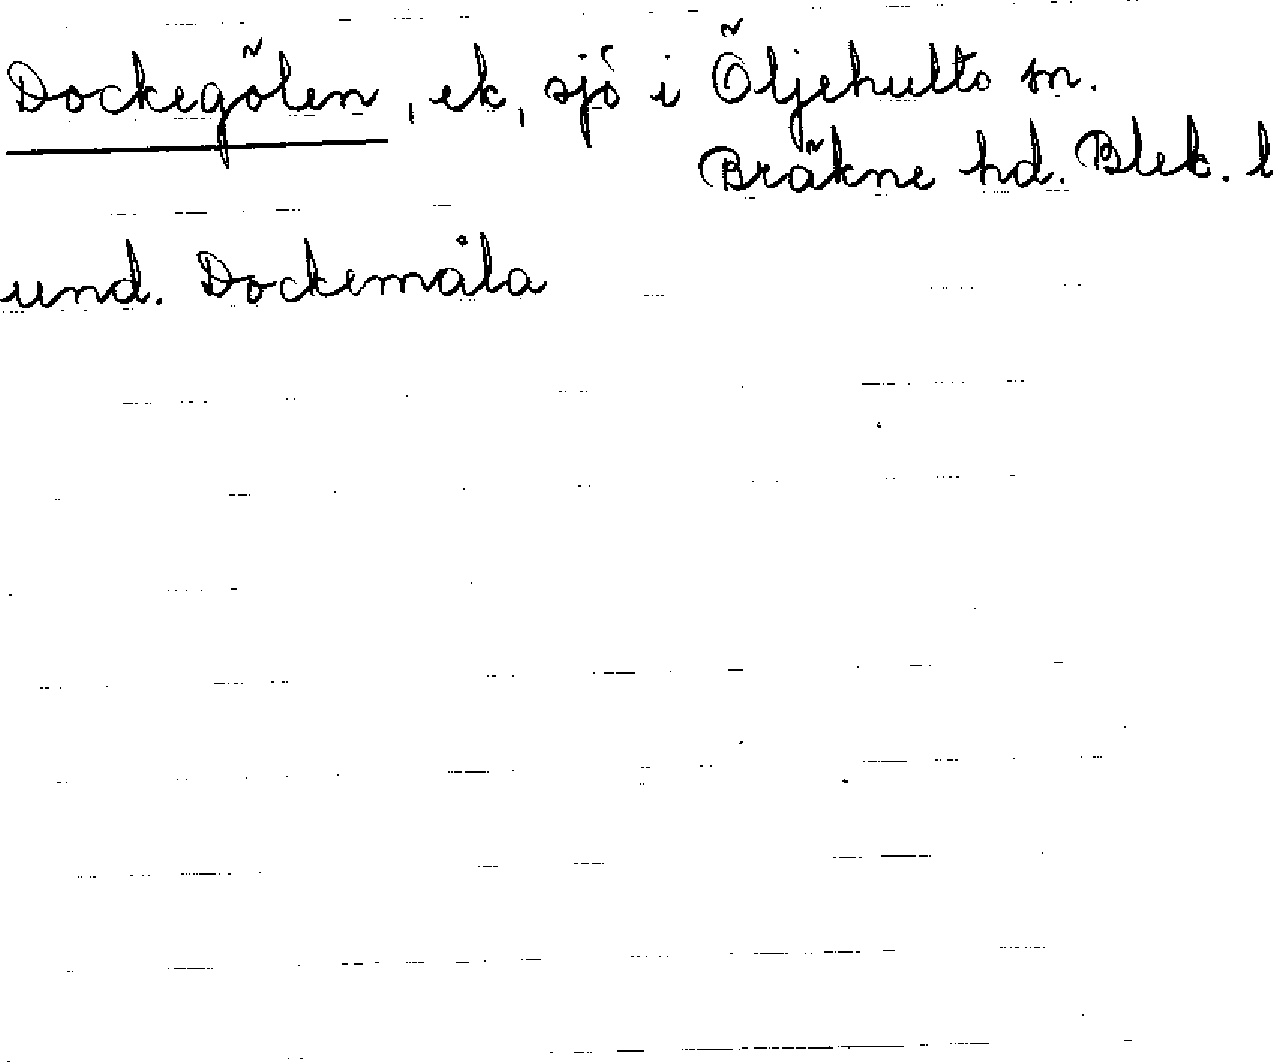 Dockegölen, ek, sjö i Öljehults sn.
Bräkne hd. Blek. l
und. Dockemåla